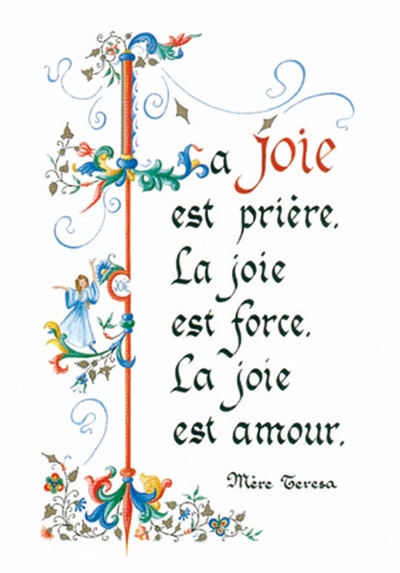 La joie
est prière.
La joie
est force.
La joie
est amour.
Mère Teresa
JOIE